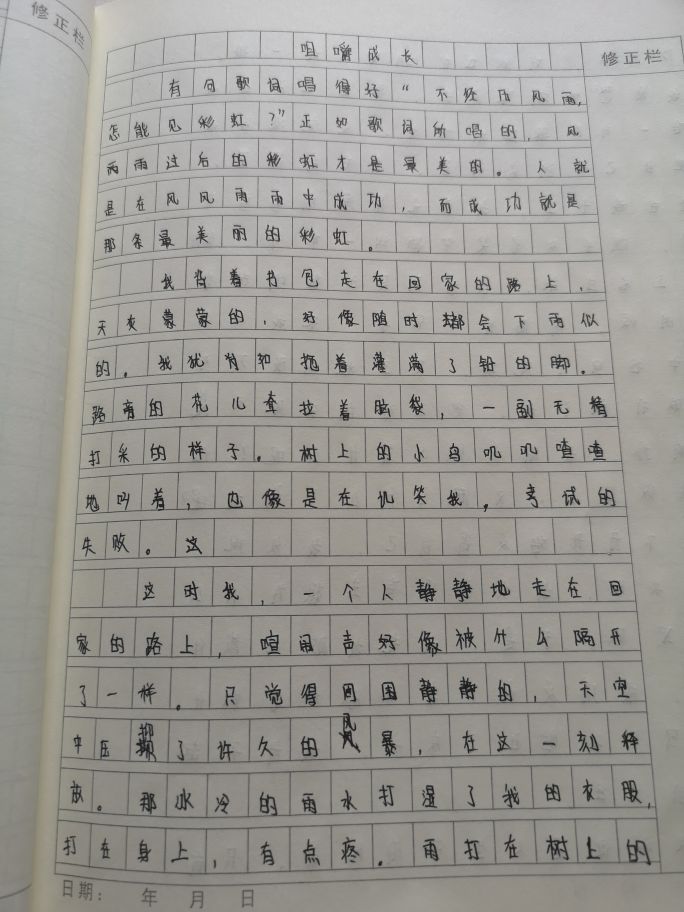 修正栏
咀嚼成长
修正栏
有句歌词唱得好“不经历风雨,
怎能见彩虹?”正如歌词所唱的,风
雨雨过后的彩虹才是最美的。人就
是在风风雨雨中成功,而成功就是
那条最美丽的彩虹。
我背着书包走在回家的路上,
天灰蒙蒙的,好像随时都会下雨似
的。我犹如拖着灌满了铅的脚。
路旁的花儿耷拉着脑袋,一副无精
打采的样子。树上的小鸟叽叽喳喳
地叫着,也像是在讥笑我,考试的
失败。这
这时我,一个人静静地走在回
家的路上,喧闹声好像被什么隔开
了一样。只觉得周围静静的,天空
中压抑了许久的风暴,在这一刻释
放。那冰冷的雨水打湿了我的衣服,
打在身上,有点疼。雨打在树上的
日期: 年 月 日